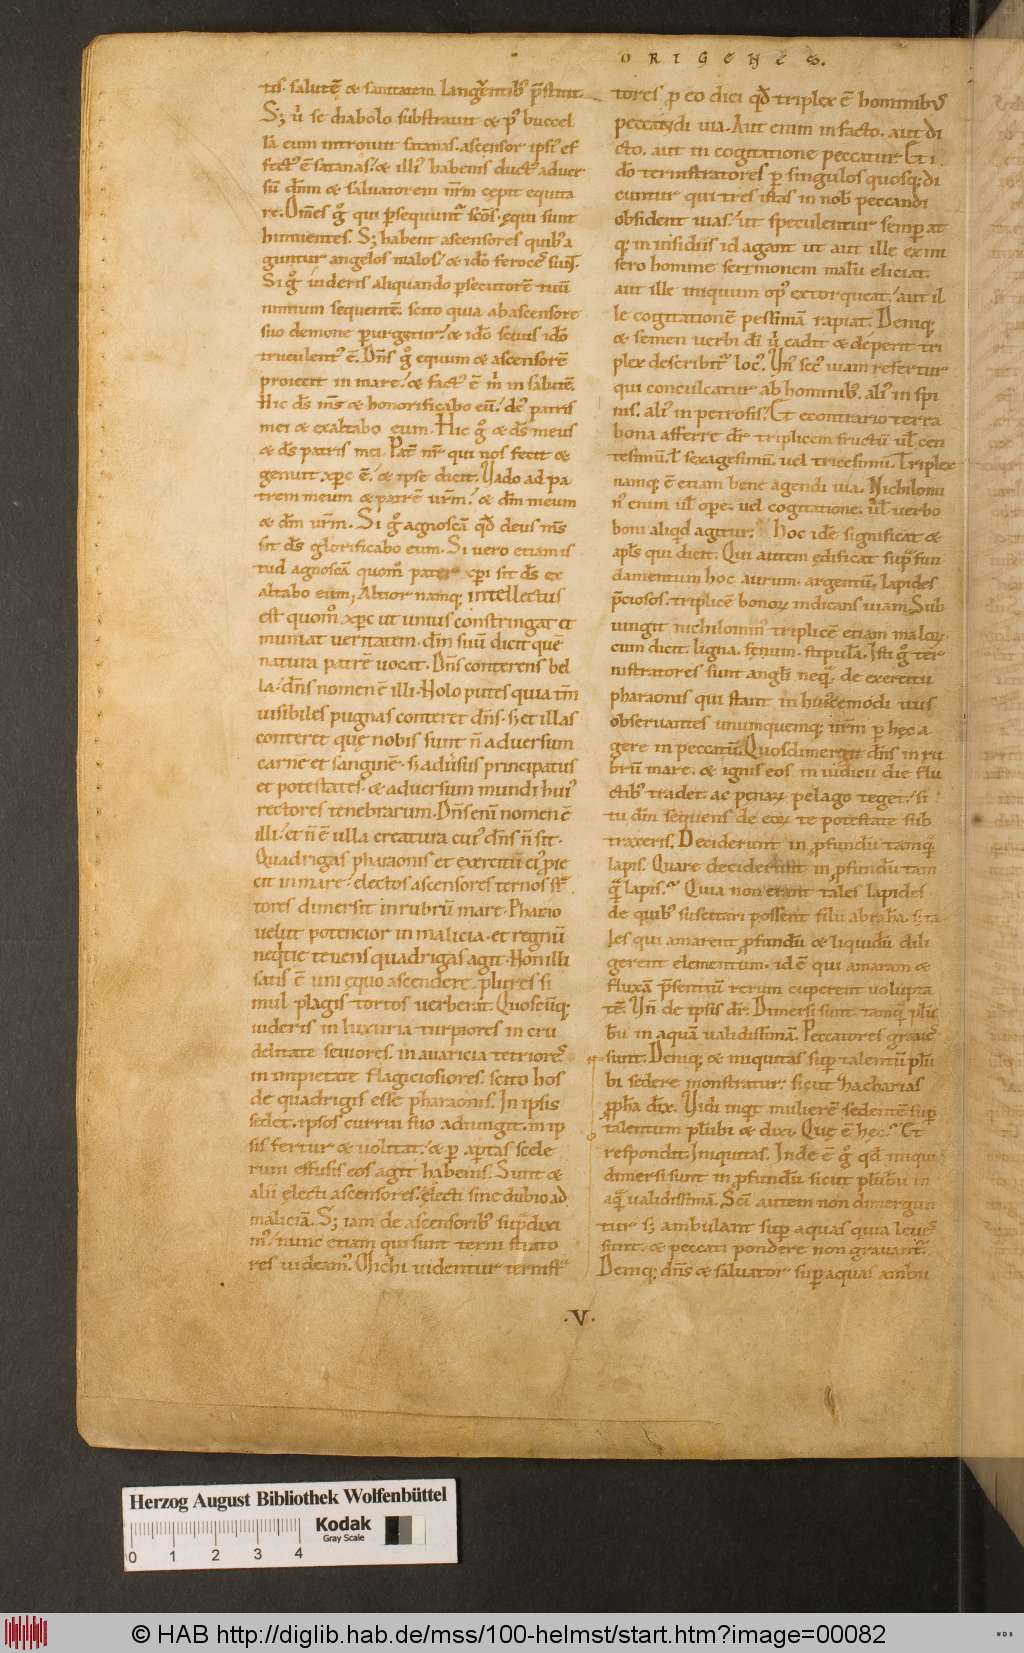 ORIGENES.
tis. salutē & sanitatem languentib; p̄stitit.
S; ū se diabolo substrauit & p' buccel
lā eum introiuit satanas. ascensor ipsi' ef
fect' ē satanas. & illi' habenis duct' aduer
sū dn̄m & saluatorem nr̄m cepit equita
re. Om̄s g̊ qui p̱sequunt̄ sc̄os. equi sunt
hinnientes. S; habent ascensores quib; a
guntur angelos malos. & id̊o feroces sunt.
Si g̊ uideris aliquando p̱secutorē tuū
nimium seuientē. scito quia ab ascensore
suo demone p̱urgetur. & id̊o seuus id̊o
truculent' ē. Dn̄s g̊ equum & ascensorē
proiecit in mare. & fact' ē m̊ in salutē.
Hic ds̄ ms̄ & honorificabo eū. ds̄ patris
mei & exaltabo eum. Hic g̊ & ds̄ meus
& ds̄ patris mei. Pat̄ nr̄ qui nos fecit &
genuit xp̄c ē. & ipse dicit. Vado ad pa
trem meum & patrē ur̄m. & dm̄ meum
& dm̄ ur̄m. Si g̊ agnoscā qd̄ deus ms̄
sit ds̄ glorificabo eum. Si uero etiam is
tud agnoscā quom̊ pater xp̄i sit ds̄ ex
altabo eum; Altior namq; intellectus
est quom̊ xp̄c ut unius constringat et
muniat ueritatem. dn̄m suū dicit quē
natura patrē uocat. Dn̄s conterens bel
la. dn̄s nomen ē illi. Nolo putes quia tm̄
uisibiles pugnas conteret dn̄s. s; et illas
conteret quę nobis sunt n̄ aduersum
carnē et sanguinē. s; adūsus principatus
et potestates. & aduersum mundi hui'
rectores tenebrarum. Dn̄s enī nomen ē
illi. et n̄ ē ulla creatura cui' dn̄s n̄ sit.
Quadrigas pharaonis et exercitū ei' proie
cit in mare. electos ascensores ternos sta
tores dimersit in rubrū mare. Pharao
uelut potencior in malicia. et regnū
neq̄tie tenens quadrigas agit. Non illi
satis ē uni equo ascendere. plures si
mul plagis tortos uerberat. Quoscūq;
uideris in luxuria turpiores in cru
delitate seuiores. in auaricia tetriores
in impietate flagiciosiores. scito hos
de quadrigis esse pharaonis. In ipsis
sedet. ipsos currui suo adiungit. in ip
sis fertur & uolitat. & p̱ ap̱tas scele
rum effusis eos agit habenis. Sunt &
alii electi ascensores. electi sine dubio ad
maliciā. S; iam de ascensorib; sup̱ dixi
m'. nunc etiam qui sunt terni stato
res uideam'. Michi uidentur terni sta
tores p̱ eo dici qd̄ triplex ē hominib;
peccandi uia. Aut enim in facto. aut di
cto. aut in cogitatione peccatur. Et i
d̊o terni statores p̱ singulos quosq; di
cuntur qui tres istas in nob̄ peccandi
obsident uias. ut speculentur semp̱ at
q; in insidiis id agant ut aut ille ex mi
sero homine sermonem malū eliciat.
aut ille iniquum op' extorqueat. aut il
le cogitationē pessimā rapiat. Deniq;
& semen uerbi dī ū cadit & deperit tri
plex describit̄ loc'. Vn' sec' uiam refertur
qui conculcatur ab hominib;. ali' in spi
nis. ali' in petrosis. Et econtrario terra
bona afferre dr̄ triplicem fructū ul̄ cen
tesimū. l̄ sexagesimū. uel tricesimū. Triplex
namq; ē etiam bene agendi uia. Nichilomi
n' enim ul̄ ope. uel cogitatione. ul̄ uerbo
boni aliqd agitur. Hoc idē significat &
apl̄s qui dicit. Qui autem ędificat sup̱ fun
damentum hoc aurum. argentū, lapides
p̄ciosos. triplicē bonoꝝ indicans uiam. Sub
iungit nichilomin' triplicē etiam maloꝝ
cum dicit. ligna. fenum. stipulā. Isti g̊ ter
ni statores sunt angli neq̄. de exercitu
pharaonis qui stant in hui'cemodi uiis
obseruantes unumquemq; nr̄m p̱ hęc a
gere in peccatū. Quos dimergit dn̄s in ru
brū mare. & ignis eos in iudicii die flu
ctib; tradet. ac penaꝝ pelago teget. si
tu dn̄m sequens de eoꝝ te potestate sub
traxeris. Deciderunt in p̱fundū tamq̄
lapis. Quare deciderunt in p̱fundū tam
q̄ lapis? Quia non erant tales lapides
de quib; suscitari possent filii abrahā. s; ta
les qui amarent p̱fundū & liquidū dili
gerent elementum. id ē qui amaram &
fluxā p̄sentiū rerum cuperent uolupta
tē. Vn̄ de ipsis dr̄. Dimersi sunt tamq̄ plū
bū in aquā ualidissimā. Peccatores graues
sunt. Deniq; & iniquitas sup̱ talentū plū
bi sedere monstratur. sicut zacharias
p̱phā dix̄. Vidi inqt mulierē sedentē sup̱
talentum plūbi & dixi. Quę ē hęc? Et
respondit. Iniquitas. Inde ē g̊ qd̄ iniqui
dimersi sunt in p̱fundū sicut plūbū in
aq̄ ualidissimā. Sc̄i autem non dimergun
tur s; ambulant sup̱ aquas quia leues
sunt. & peccati pondere non grauant̄.
Deniq; dn̄s & saluator sup̱ aquas ambu
.V.
Herzog August Bibliothek Wolfenbüttel
Kodak
Gray Scale
0 1 2 3 4
© HAB http://diglib.hab.de/mss/100-helmst/start.htm?image=00082